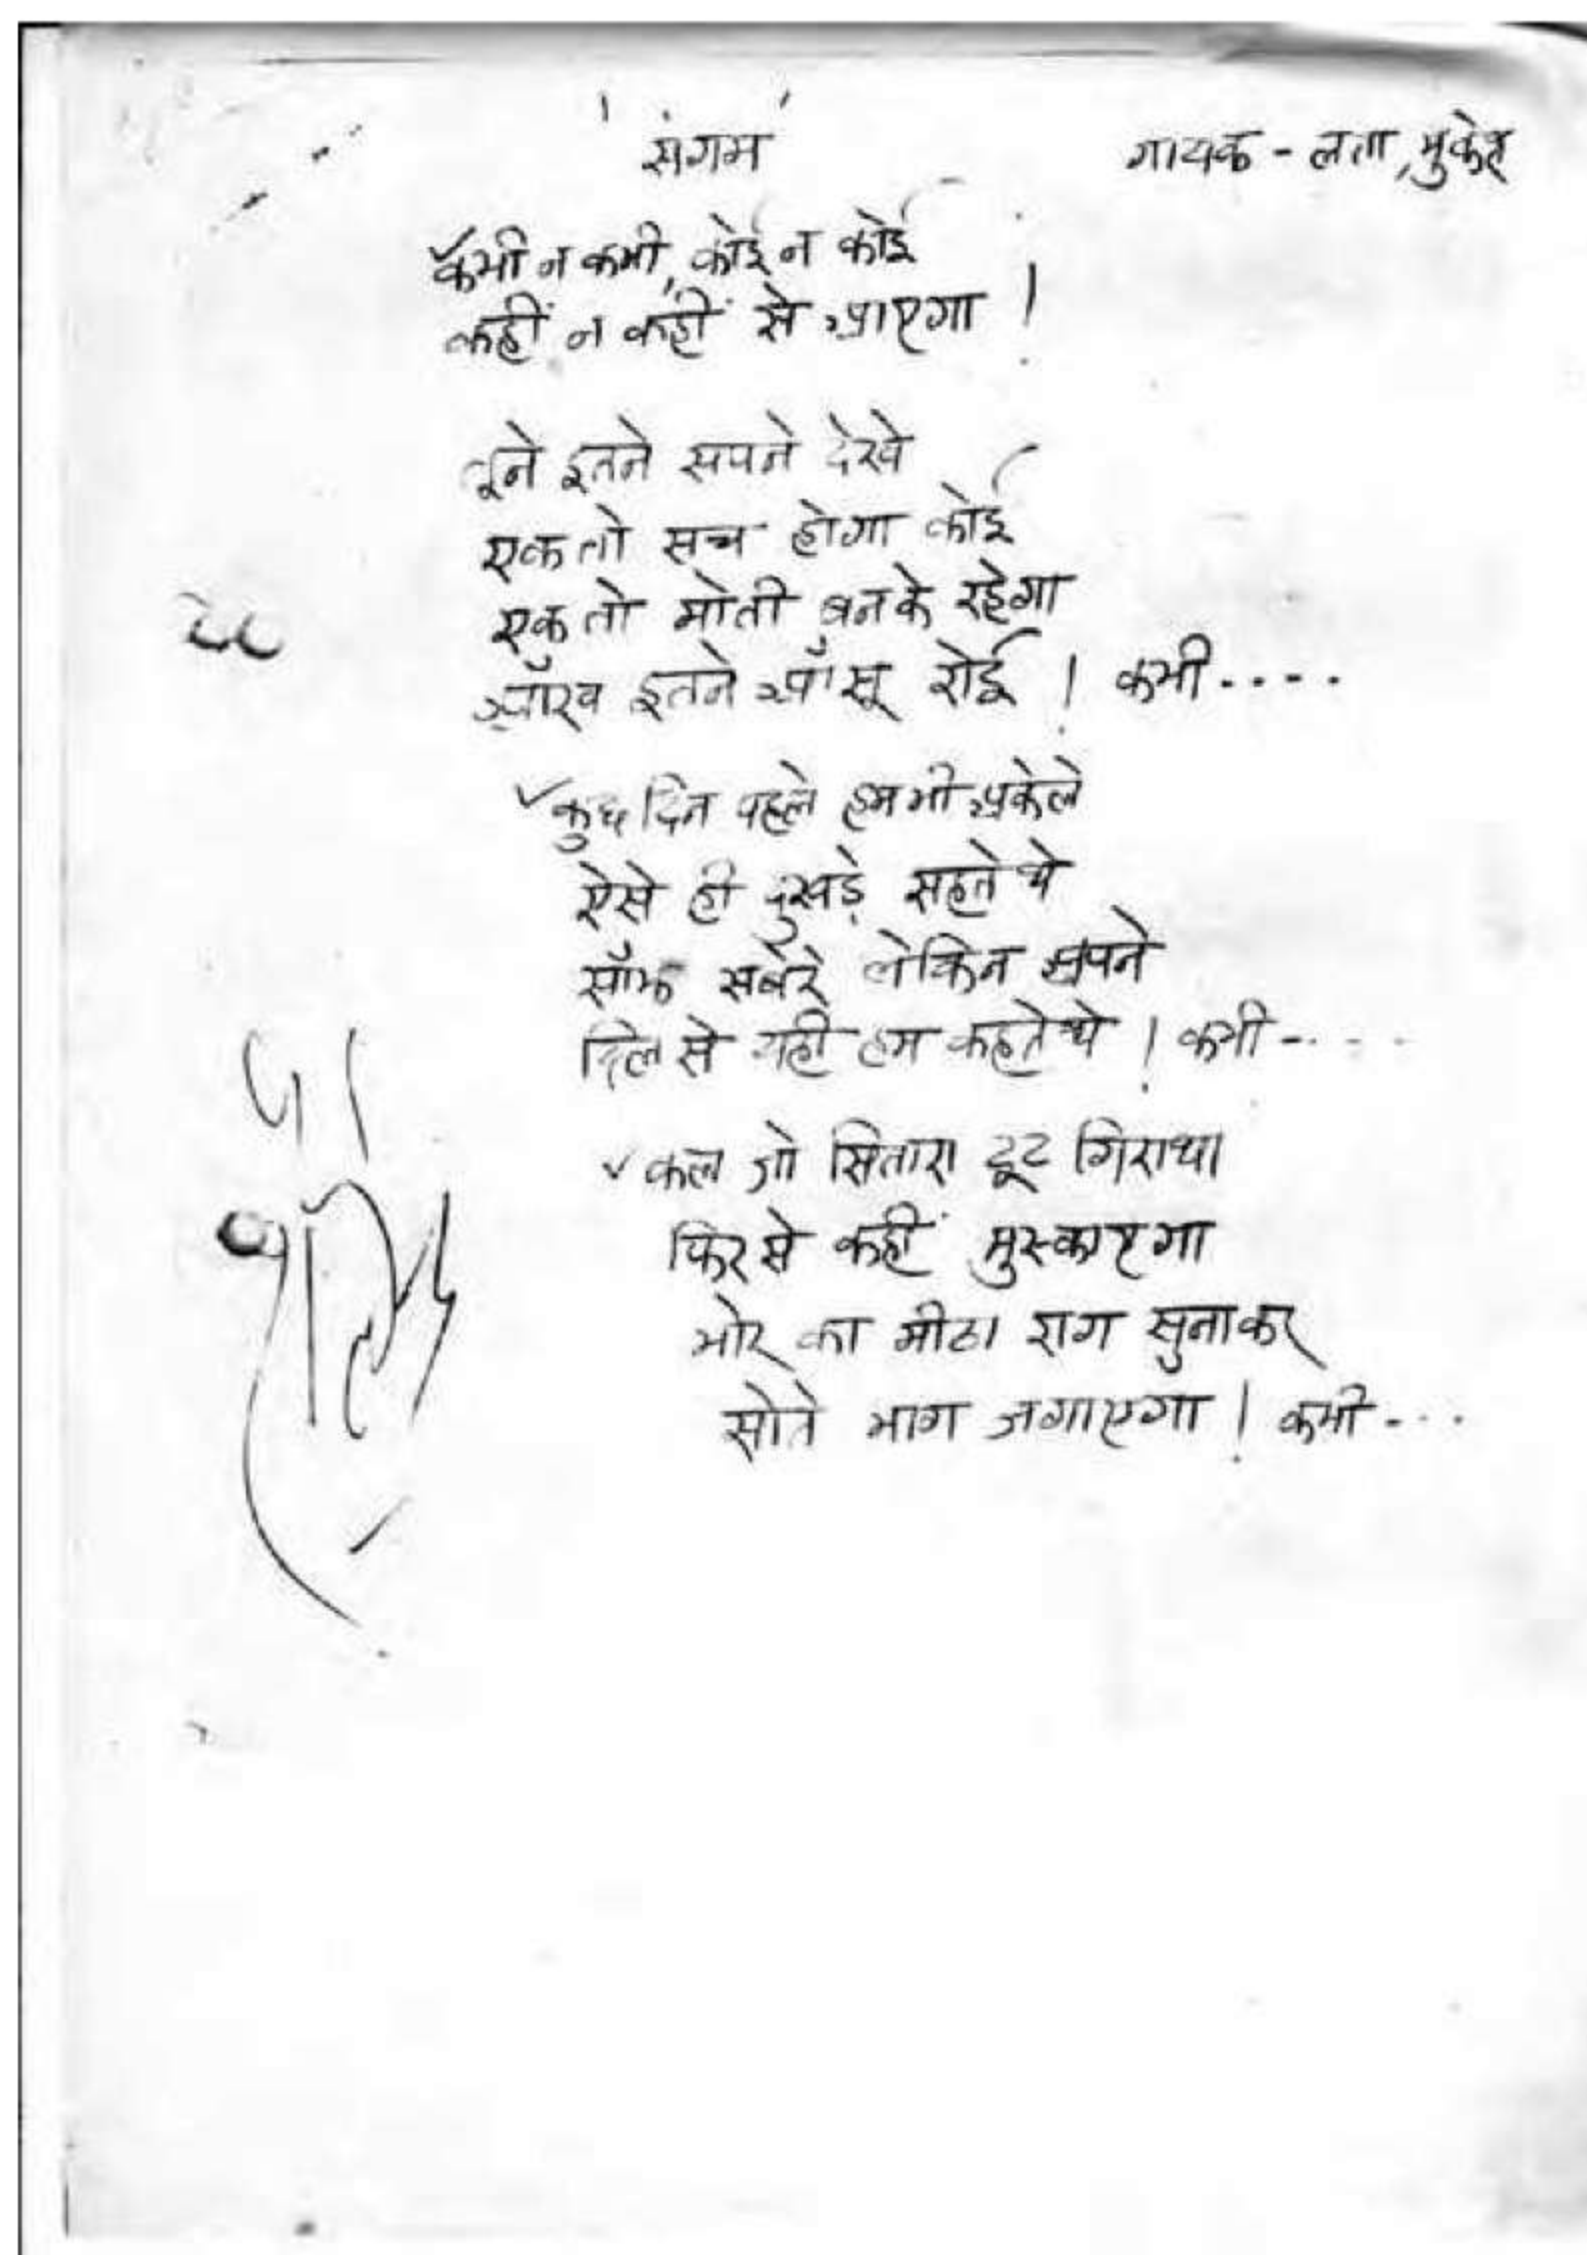 'संगम' गायक - लता, मुकेश
कभी न कभी, कोई न कोई
कहीं न कहीं से आएगा !
तूने इतने सपने देखे
एक तो सच होगा कोई
एक तो मोती बनके रहेगा
आँख इतने आँसू रोई ! कभी ....
कुछ दिन पहले हम भी अकेले
ऐसे ही दुखड़े सहते थे
साँझ सवेरे लेकिन अपने
दिल से यही हम कहते थे ! कभी - ...
कल जो सितारा टूट गिरा था
फिर से कहीं मुस्काएगा
भोर का मीठा राग सुनाकर
सोते भाग जगाएगा ! कभी - ...